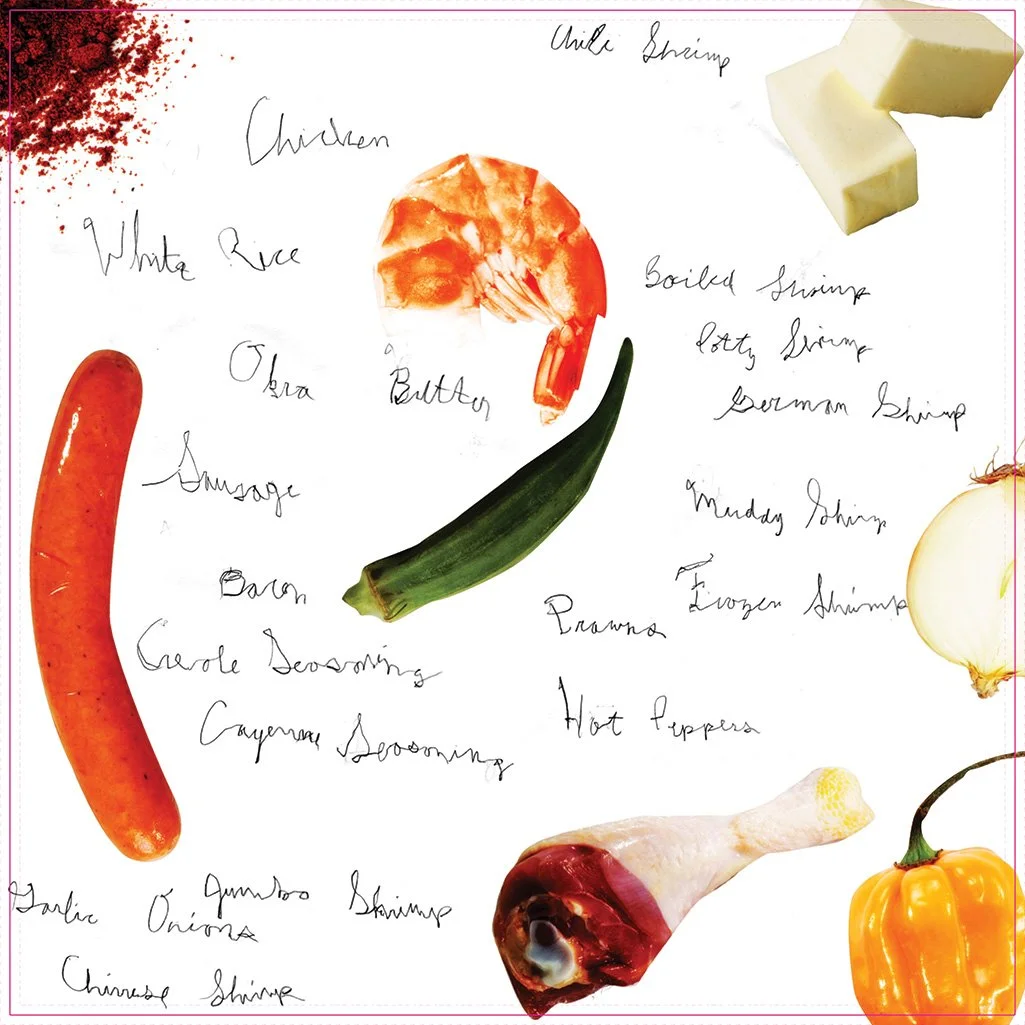 Chili Shrimp
Chicken
White Rice
Boiled Shrimp
Potty Shrimp
Okra
Butter
German Shrimp
Sausage
Muddy Shrimp
Bacon
Frozen Shrimp
Prawns
Creole Seasoning
Cayenne Seasoning
Hot Peppers
Garlic
Onions
Jumbo Shrimp
Chinese Shrimp